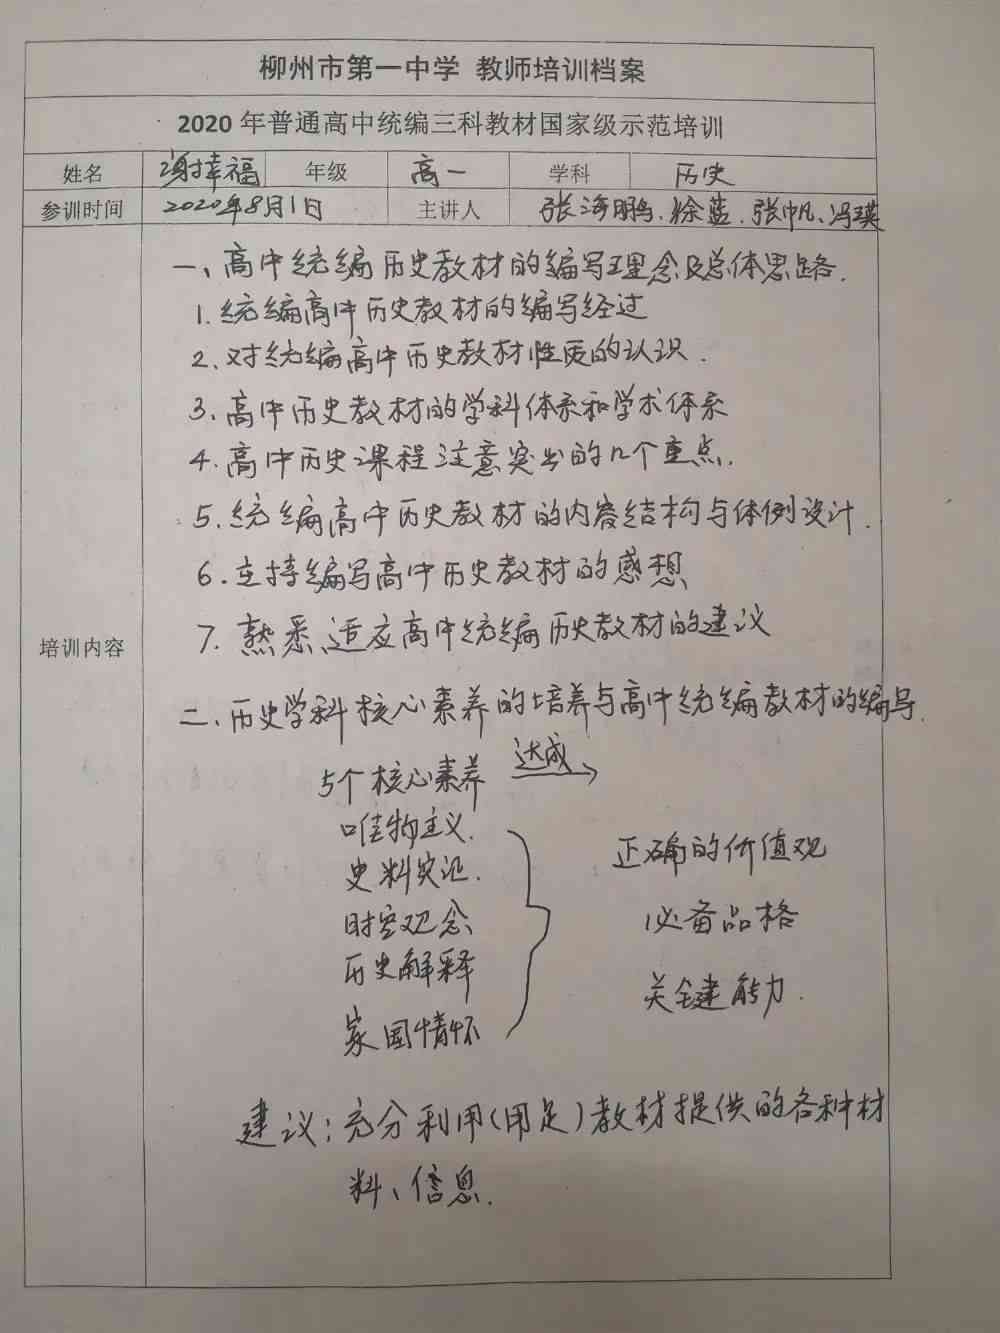 柳州市第一中学 教师培训档案
2020 年普通高中统编三科教材国家级示范培训
姓名 谢幸福 年级 高一 学科 历史
参训时间 2020年8月1日 主讲人 张海鹏、徐蓝、张帆、冯瑛
培训内容
一、高中统编历史教材的编写理念及总体思路.
1.统编高中历史教材的编写经过
2.对统编高中历史教材性质的认识.
3.高中历史教材的学科体系和学术体系
4.高中历史课程注意突出的几个重点.
5.统编高中历史教材的内容结构与体例设计.
6.主持编写高中历史教材的感想
7.熟悉、适应高中统编历史教材的建议
二、历史学科核心素养的培养与高中统编教材的编写.
5个核心素养 达成
唯物主义. 正确的价值观
史料实证.
时空观念 必备品格
历史解释
关键能力.
家国情怀
建议:充分利用(用足)教材提供的各种材
料、信息.